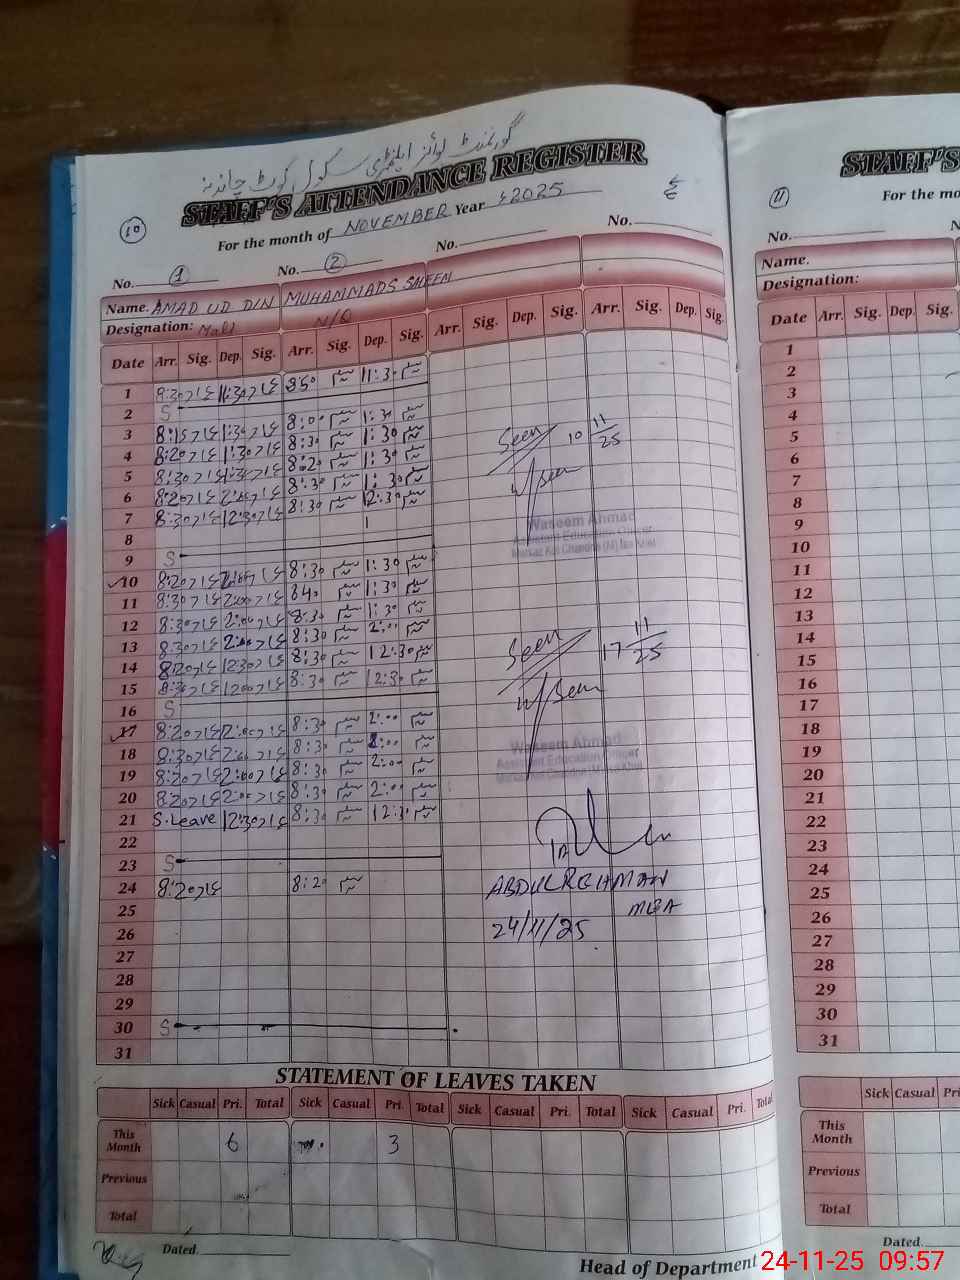 گورنمنٹ بوائز ایلیمنٹری سکول کوٹ چاندنہ
STAFF'S ATTENDANCE REGISTER
10
For the month of NOVEMBER Year 2025
No. 1 No. 2 No. No.
Name. AMAD UD DIN MUHAMMAD SALEEM
Designation: Mali N/Q
Date Arr. Sig. Dep. Sig. Arr. Sig. Dep. Sig. Arr. Sig. Dep. Sig. Arr. Sig. Dep. Sig.
1 8:30 11:30 11:30
2 S
3 8:15 1:30 8:00 1:30
4 8:20 1:30 8:30 1:30
5 8:30 1:30 8:20 1:30
6 8:20 2:00 8:30 1:30
7 8:30 12:30 8:30 12:30
8
9 S
10 8:20 2:00 8:30 1:30
11 8:30 2:00 840 1:30
12 8:30 2:00 8:30 1:30
13 8:30 2:00 8:30 2:00
14 8:20 1230 8:30 12:30
15 8:30 1200 8:30 12:30
16 S
17 8:20 2:00 8:30 2:00
18 8:30 2:00 8:30 2:00
19 8:20 2:00 8:30 2:00
20 8:20 2:00 8:30 2:00
21 S.Leave 12:30 8:30 12:30
22
23 S
24 8:20 8:20
25
26
27
28
29
30 S
31
Seen 10 11/25
Waseem Ahmad
Assistant Education Officer
Seen 17 11/25
Waseem Ahmad
Assistant Education Officer
ABDUL REHMAN
MEA
24/11/25
STATEMENT OF LEAVES TAKEN
Sick Casual Pri. Total Sick Casual Pri. Total Sick Casual Pri. Total Sick Casual Pri. Total
This Month 6 3
Previous
Total
Dated.
Head of Department
11
STAFF'S
For the mo
No.
Name.
Designation:
Date Arr. Sig. Dep. Sig.
1
2
3
4
5
6
7
8
9
10
11
12
13
14
15
16
17
18
19
20
21
22
23
24
25
26
27
28
29
30
31
Sick Casual Pri
This Month
Previous
Total
Dated.
24-11-25 09:57